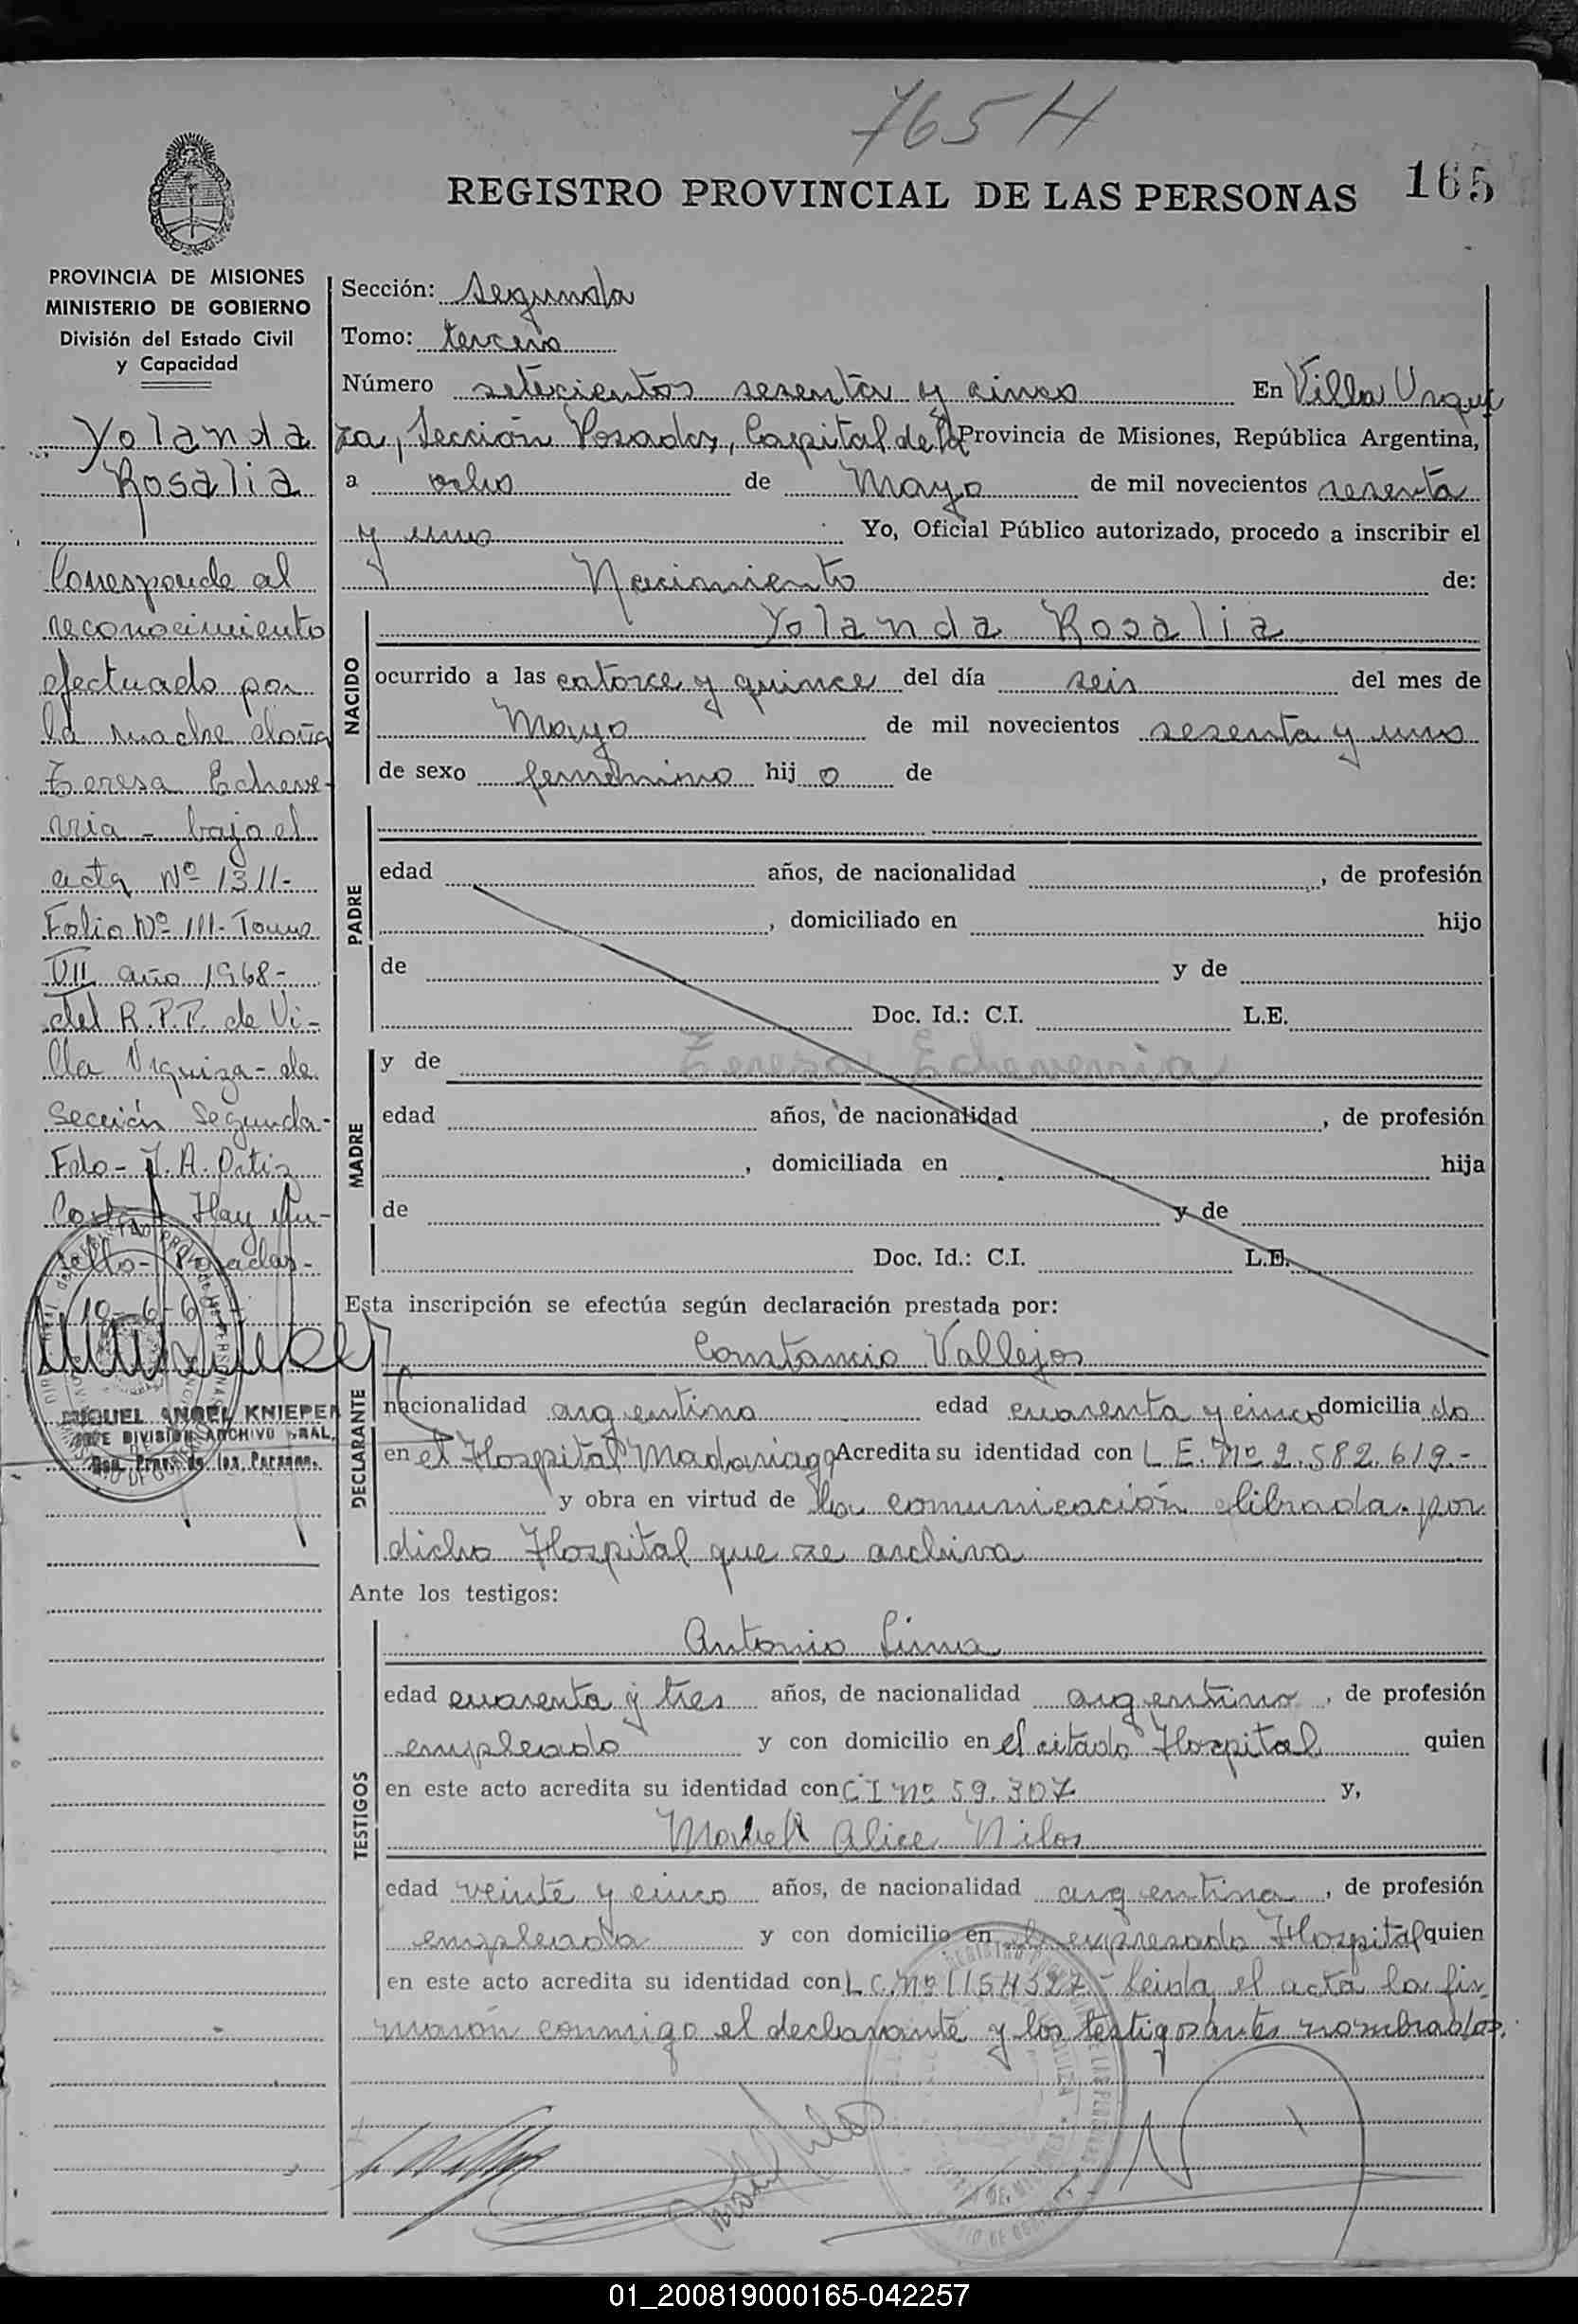 765 H
165
REGISTRO PROVINCIAL DE LAS PERSONAS
PROVINCIA DE MISIONES
MINISTERIO DE GOBIERNO
División del Estado Civil
y Capacidad
Yolanda
Rosalia
Corresponde al
reconocimiento
efectuado por
la madre doña
Teresa Echeve-
rria - bajo el
acta Nº 1311-
Folio Nº 111- Tomo
VII año 1968-
del R.P.P. de Vi-
lla Urquiza - de
Sección Segunda-
Fdo- J. A. Ortiz
Costa Hay un
sello- Posadas-
10-6-6
MIGUEL ANGEL KNIEPER
JEFE DIVISION ARCHIVO GRAL.
Reg. Prov. de las Persons.
Sección: Segunda
Tomo: tercero
Número setecientos sesenta y cinco En Villa Urqui
za, Sección Posadas, Capital de la Provincia de Misiones, República Argentina,
a ocho de Mayo de mil novecientos sesenta
y uno Yo, Oficial Público autorizado, procedo a inscribir el
Nacimiento de:
NACIDO
Yolanda Rosalia
ocurrido a las catorce y quince del día seis del mes de
Mayo de mil novecientos sesenta y uno
de sexo femenino hij o de
PADRE
edad años, de nacionalidad , de profesión
, domiciliado en hijo
de y de
Doc. Id.: C.I. L.E.
MADRE
y de Teresa Echeverria
edad años, de nacionalidad , de profesión
, domiciliada en hija
de y de
Doc. Id.: C.I. L.E.
Esta inscripción se efectúa según declaración prestada por:
DECLARANTE
Constancio Vallejos
nacionalidad argentino edad cuarenta y cinco domicilia do
en el Hospital Madariaga Acredita su identidad con L.E. Nº 2.582.619.-
y obra en virtud de la comunicación librada por
dicho Hospital que se archiva
Ante los testigos:
TESTIGOS
Antonio Lima
edad cuarenta y tres años, de nacionalidad argentino, de profesión
empleado y con domicilio en el citado Hospital quien
en este acto acredita su identidad con C I Nº 59.307 y,
Alice
edad veinte y cinco años, de nacionalidad argentina, de profesión
empleada y con domicilio en el expresado Hospital quien
en este acto acredita su identidad con L.C. Nº 1154327.- Leida el acta la fir
maron conmigo el declarante y los testigos antes nombrados.
01_200819000165-042257